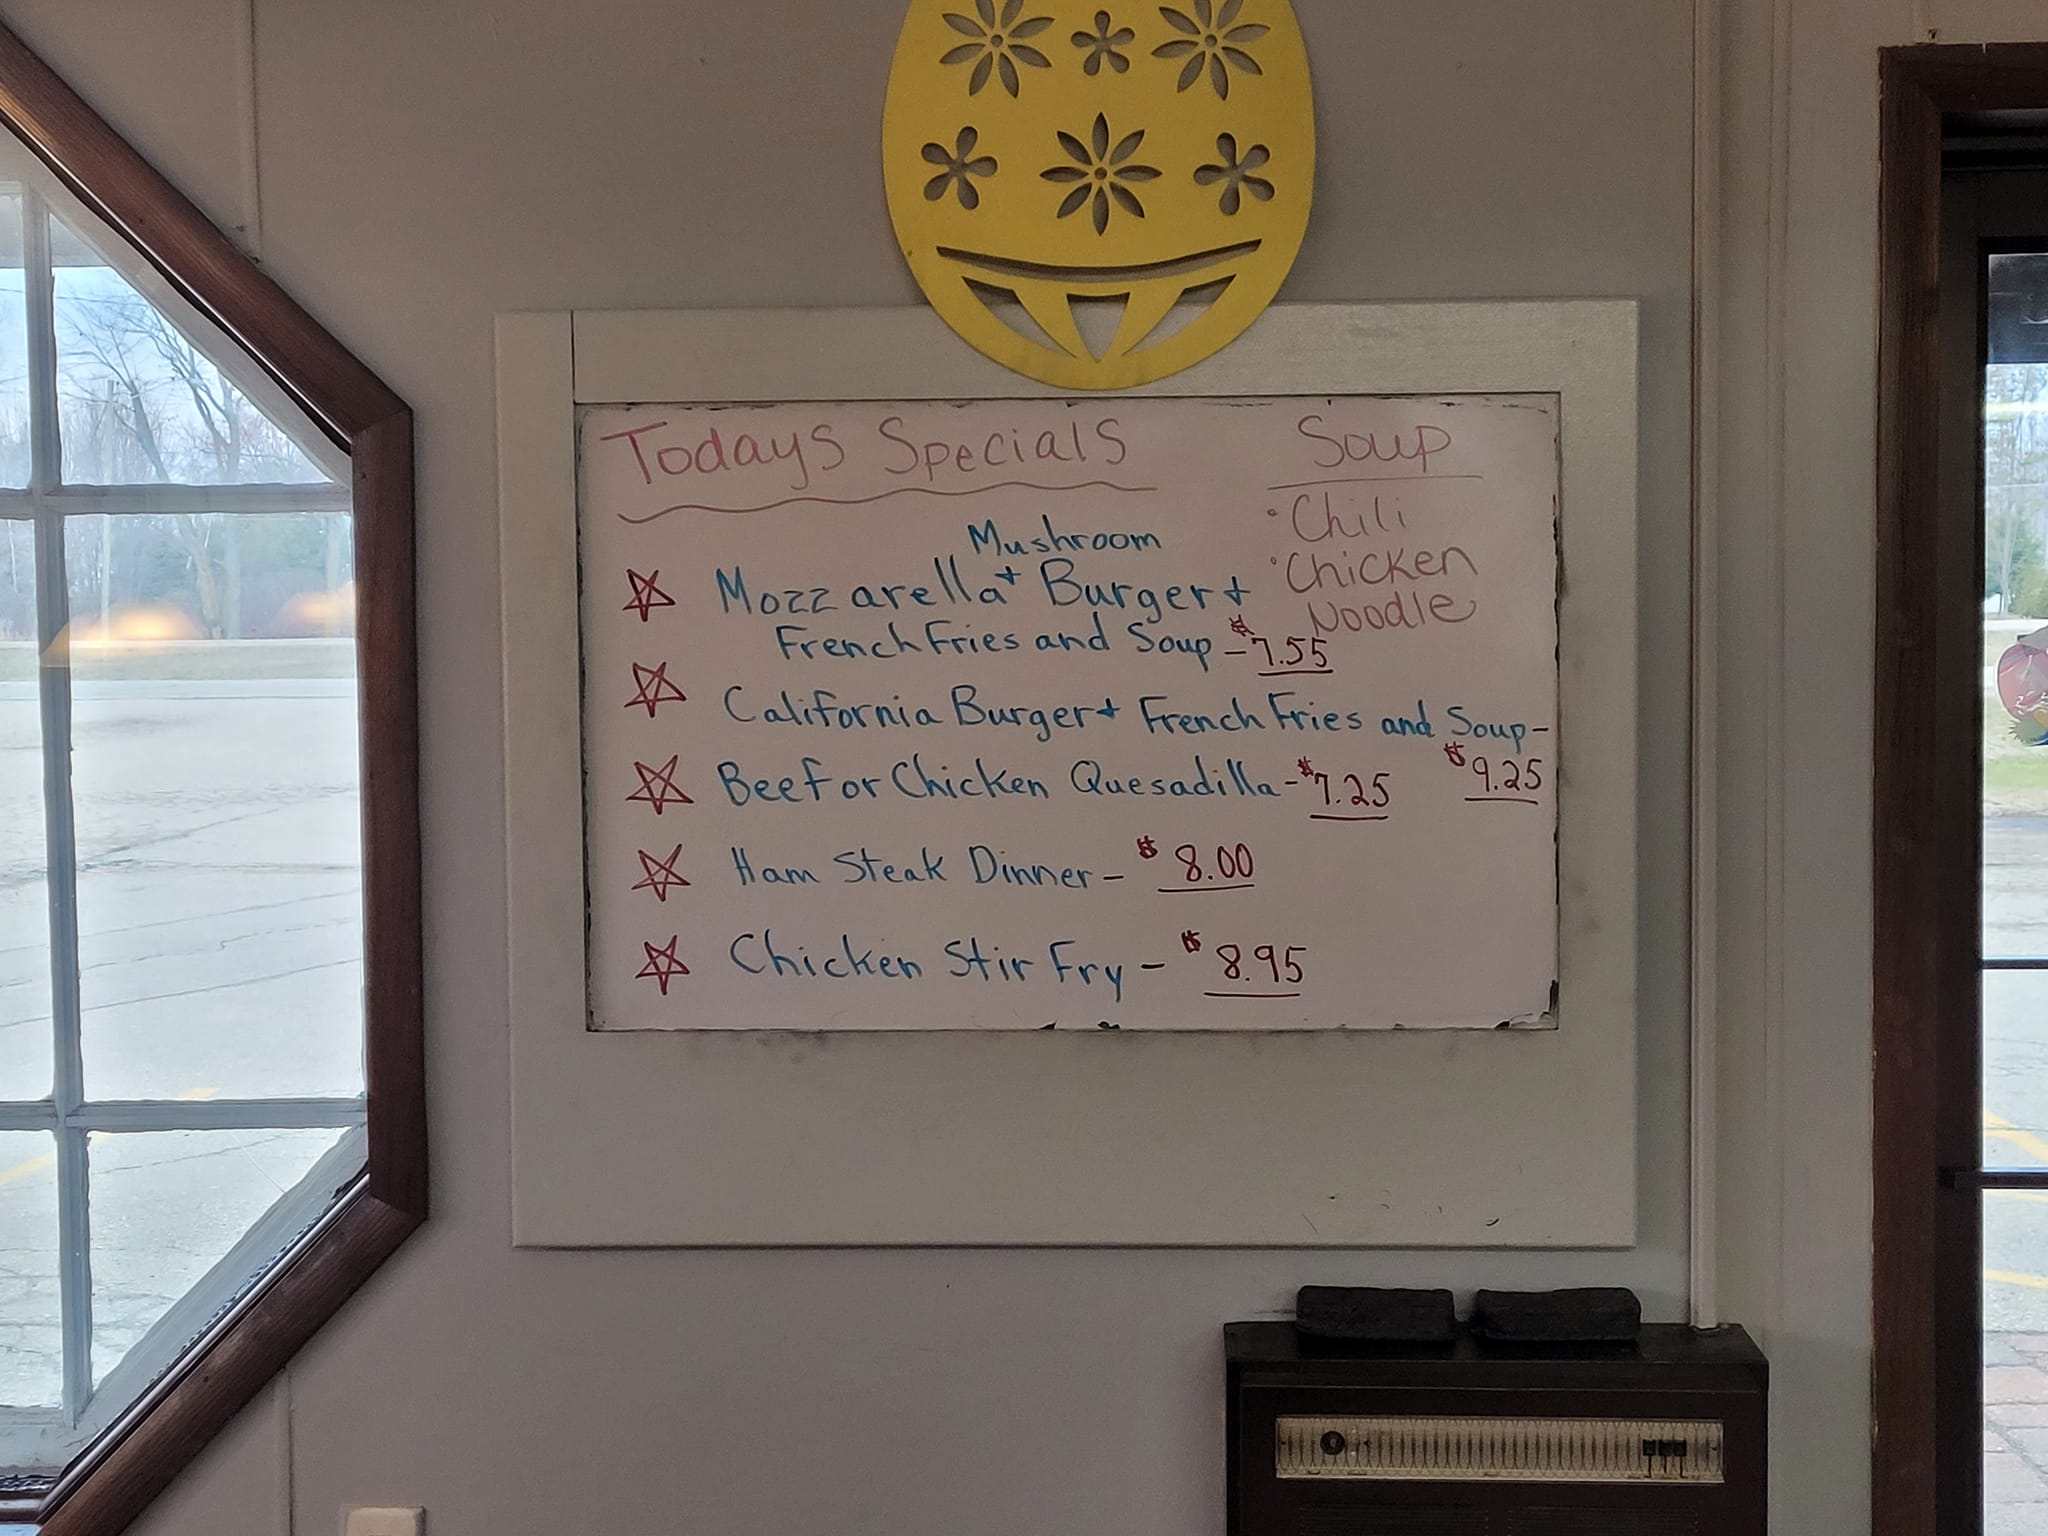 Todays Specials
Soup
• Chili
• Chicken
Noodle
Mushroom
Mozzarella + Burger +
French Fries and Soup - $7.55
California Burger + French Fries and Soup -
$9.25
Beef or Chicken Quesadilla - $7.25
Ham Steak Dinner - $8.00
Chicken Stir Fry - $8.95